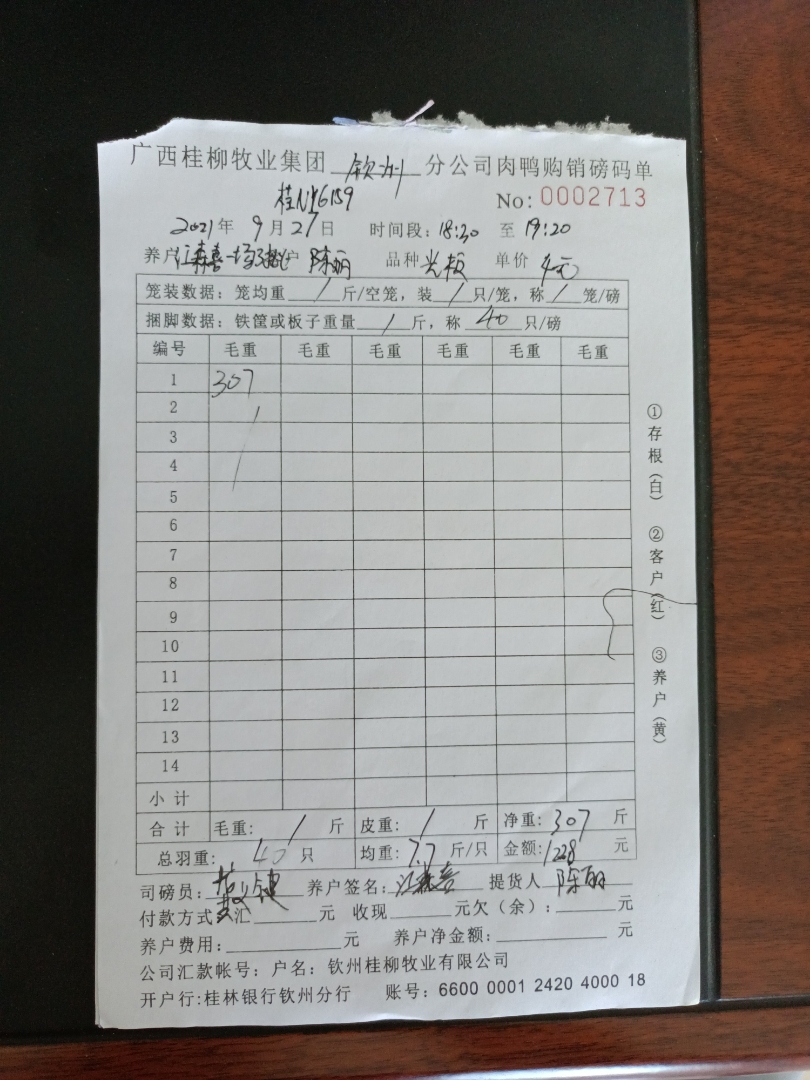 广西桂柳牧业集团 钦州 分公司肉鸭购销磅码单
No: 0002713
2021年 9月27日 时间段: 18:30 至 19:20
养户 江森喜 户 陈丽 品种 光板 单价 4元
笼装数据: 笼均重 / 斤/空笼, 装 / 只/笼, 称 / 笼/磅
捆脚数据: 铁筐或板子重量 / 斤, 称 40 只/磅
编号 毛重 毛重 毛重 毛重 毛重 毛重
1 307
2
3
4
5
6
7
8
9
10
11
12
13
14
小计
合计 毛重: / 斤 皮重: / 斤 净重: 307 斤
总羽重: 40 只 均重: 7.7 斤/只 金额: 1228 元
司磅员: 养户签名: 江森喜 提货人 陈丽
付款方式 汇 元 收现 元欠(余): 元
养户费用: 元 养户净金额: 元
公司汇款帐号: 户名: 钦州桂柳牧业有限公司
开户行:桂林银行钦州分行 账号: 6600 0001 2420 4000 18
①存根(白) ②客户(红) ③养户(黄)